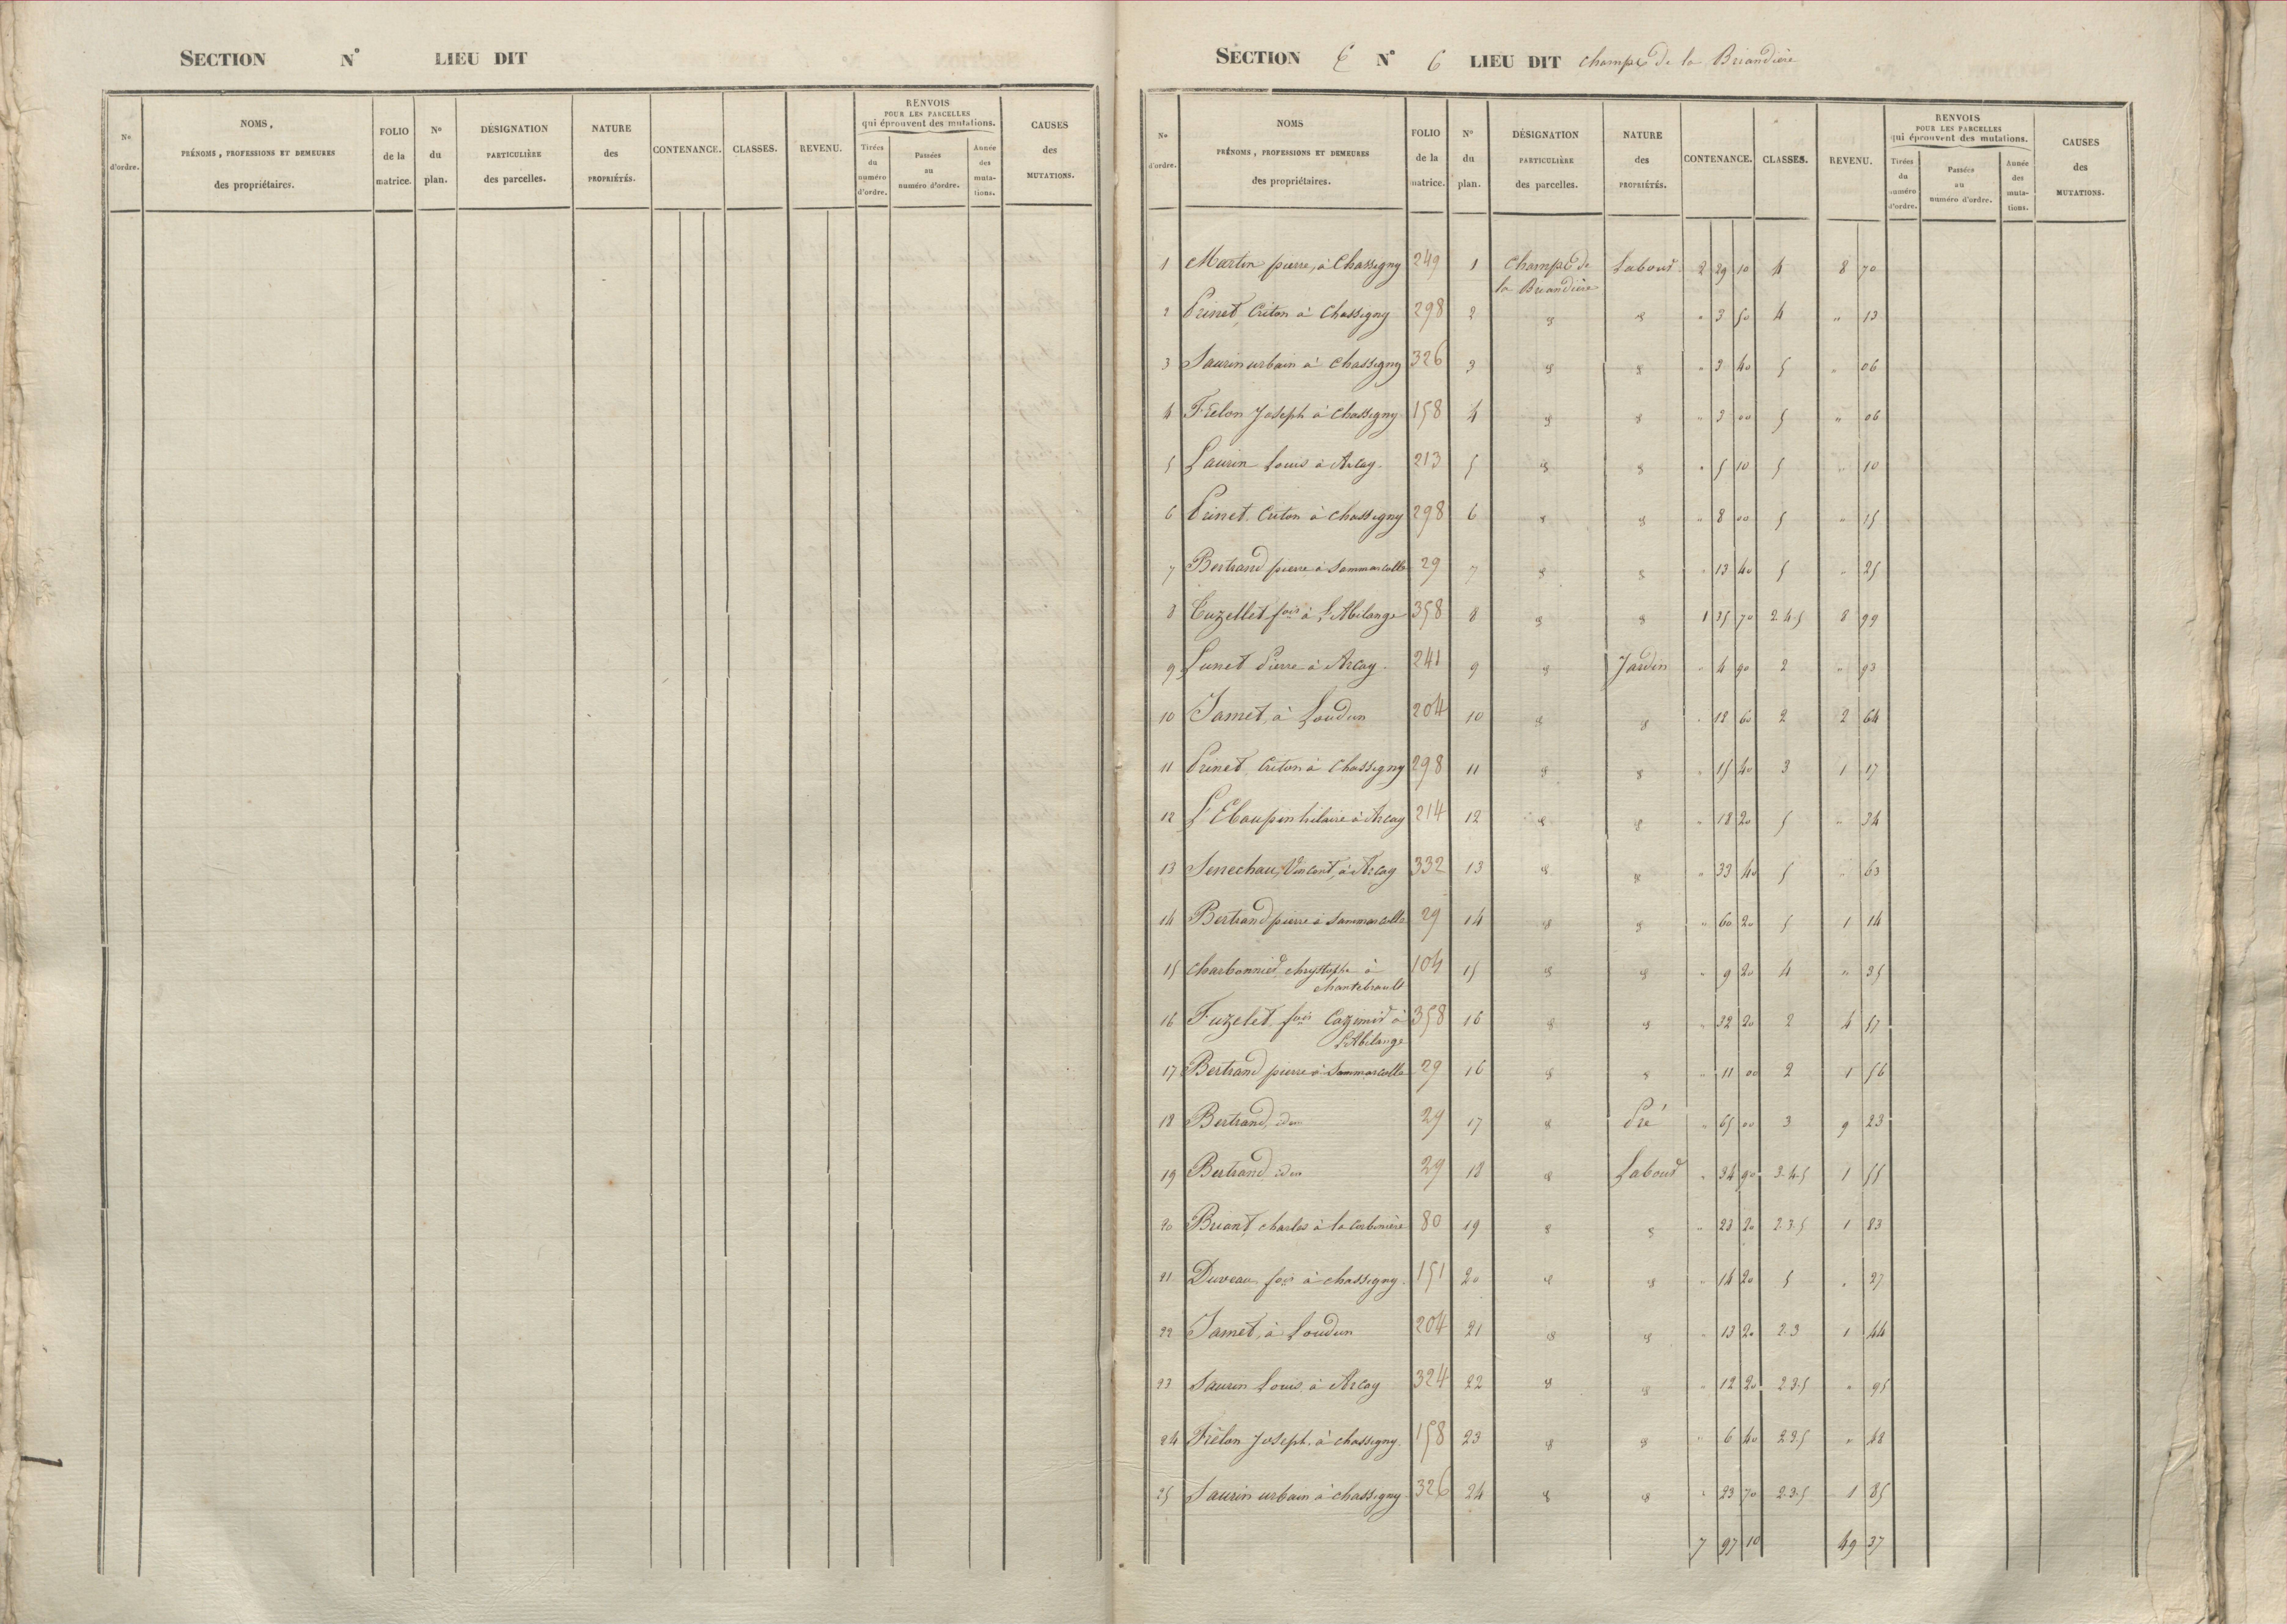 SECTION N° LIEU DIT
Nos d'ordre.
NOMS, PRÉNOMS, PROFESSIONS ET DEMEURES des propriétaires.
FOLIO de la matrice.
No du plan.
DÉSIGNATION PARTICULIÈRE des parcelles.
NATURE des PROPRIÉTÉS.
CONTENANCE.
CLASSES.
REVENU.
RENVOIS POUR LES PARCELLES qui éprouvent des mutations.
Tirées du numéro d'ordre.
Passées au numéro d'ordre.
Année des mutations.
CAUSES des MUTATIONS.
SECTION E N° 6 LIEU DIT Champs de la Briandière
Nos d'ordre.
NOMS PRÉNOMS, PROFESSIONS ET DEMEURES des propriétaires.
FOLIO de la matrice.
No du plan.
DÉSIGNATION PARTICULIÈRE des parcelles.
NATURE des PROPRIÉTÉS.
CONTENANCE.
CLASSES.
REVENU.
RENVOIS POUR LES PARCELLES qui éprouvent des mutations.
Tirées du numéro d'ordre.
Passées au numéro d'ordre.
Année des mutations.
CAUSES des MUTATIONS.
1 Martin pierre, à Chassigny 249 1 Champs de la Briandière Labour 2 29 10 4 8 70
2 Prinet, Criton à Chassigny 298 2 " " " 3 50 4 " 13
3 Saurin urbain à Chassigny 326 3 " " " 3 40 5 " 06
4 Frélon Joseph à Chassigny 158 4 " " " 3 00 5 " 06
5 Laurin Louis à Arcay 213 5 " " " 5 10 5 " 10
6 Prinet Criton à Chassigny 298 6 " " " 8 00 5 " 15
7 Bertrand pierre à Sammarcolle 29 7 " " " 13 40 5 " 25
8 Tuzellet fois à L'Abilange 358 8 " " 1 35 70 2.4.5 8 99
9 Lunet Pierre à Arcay 241 9 " Jardin " 4 90 2 " 93
10 Jamet, à Loudun 204 10 " " " 18 60 2 2 64
11 Prinet Criton à Chassigny 298 11 " " " 15 40 3 1 17
12 L'Ebaupin hilaire à Arcay 214 12 " " " 18 20 5 " 34
13 Senechau, Vincent, à Arcay 332 13 " " " 33 40 5 " 63
14 Bertrand pierre à Sammarcolle 29 14 " " " 60 20 5 1 14
15 Charbonnier chrystophe à chantebrault 104 15 " " " 9 20 4 " 35
16 Fuzelet fois Cazimir à L'Abilange 358 16 " " " 32 20 2 4 57
17 Bertrand pierre à Sammarcolle 29 16 " " " 11 00 2 1 56
18 Bertrand, idem 29 17 " Pré " 65 00 3 9 23
19 Bertrand, idem 29 18 " Labour " 34 90 3.4.5 1 55
20 Briant charles à la Corbinière 80 19 " " " 23 20 2.3.5 1 83
21 Duveau fois à chassigny 151 20 " " " 14 20 5 " 27
22 Jamet, à Loudun 204 21 " " " 13 20 2.3 1 44
23 Saurin Louis à Arcay 324 22 " " " 12 20 2.3.5 " 95
24 Frélon Joseph à chassigny 158 23 " " " 6 40 2.3.5 " 48
25 Saurin urbain à chassigny 326 24 " " " 23 70 2.3.5 1 85
7 97 10 49 37